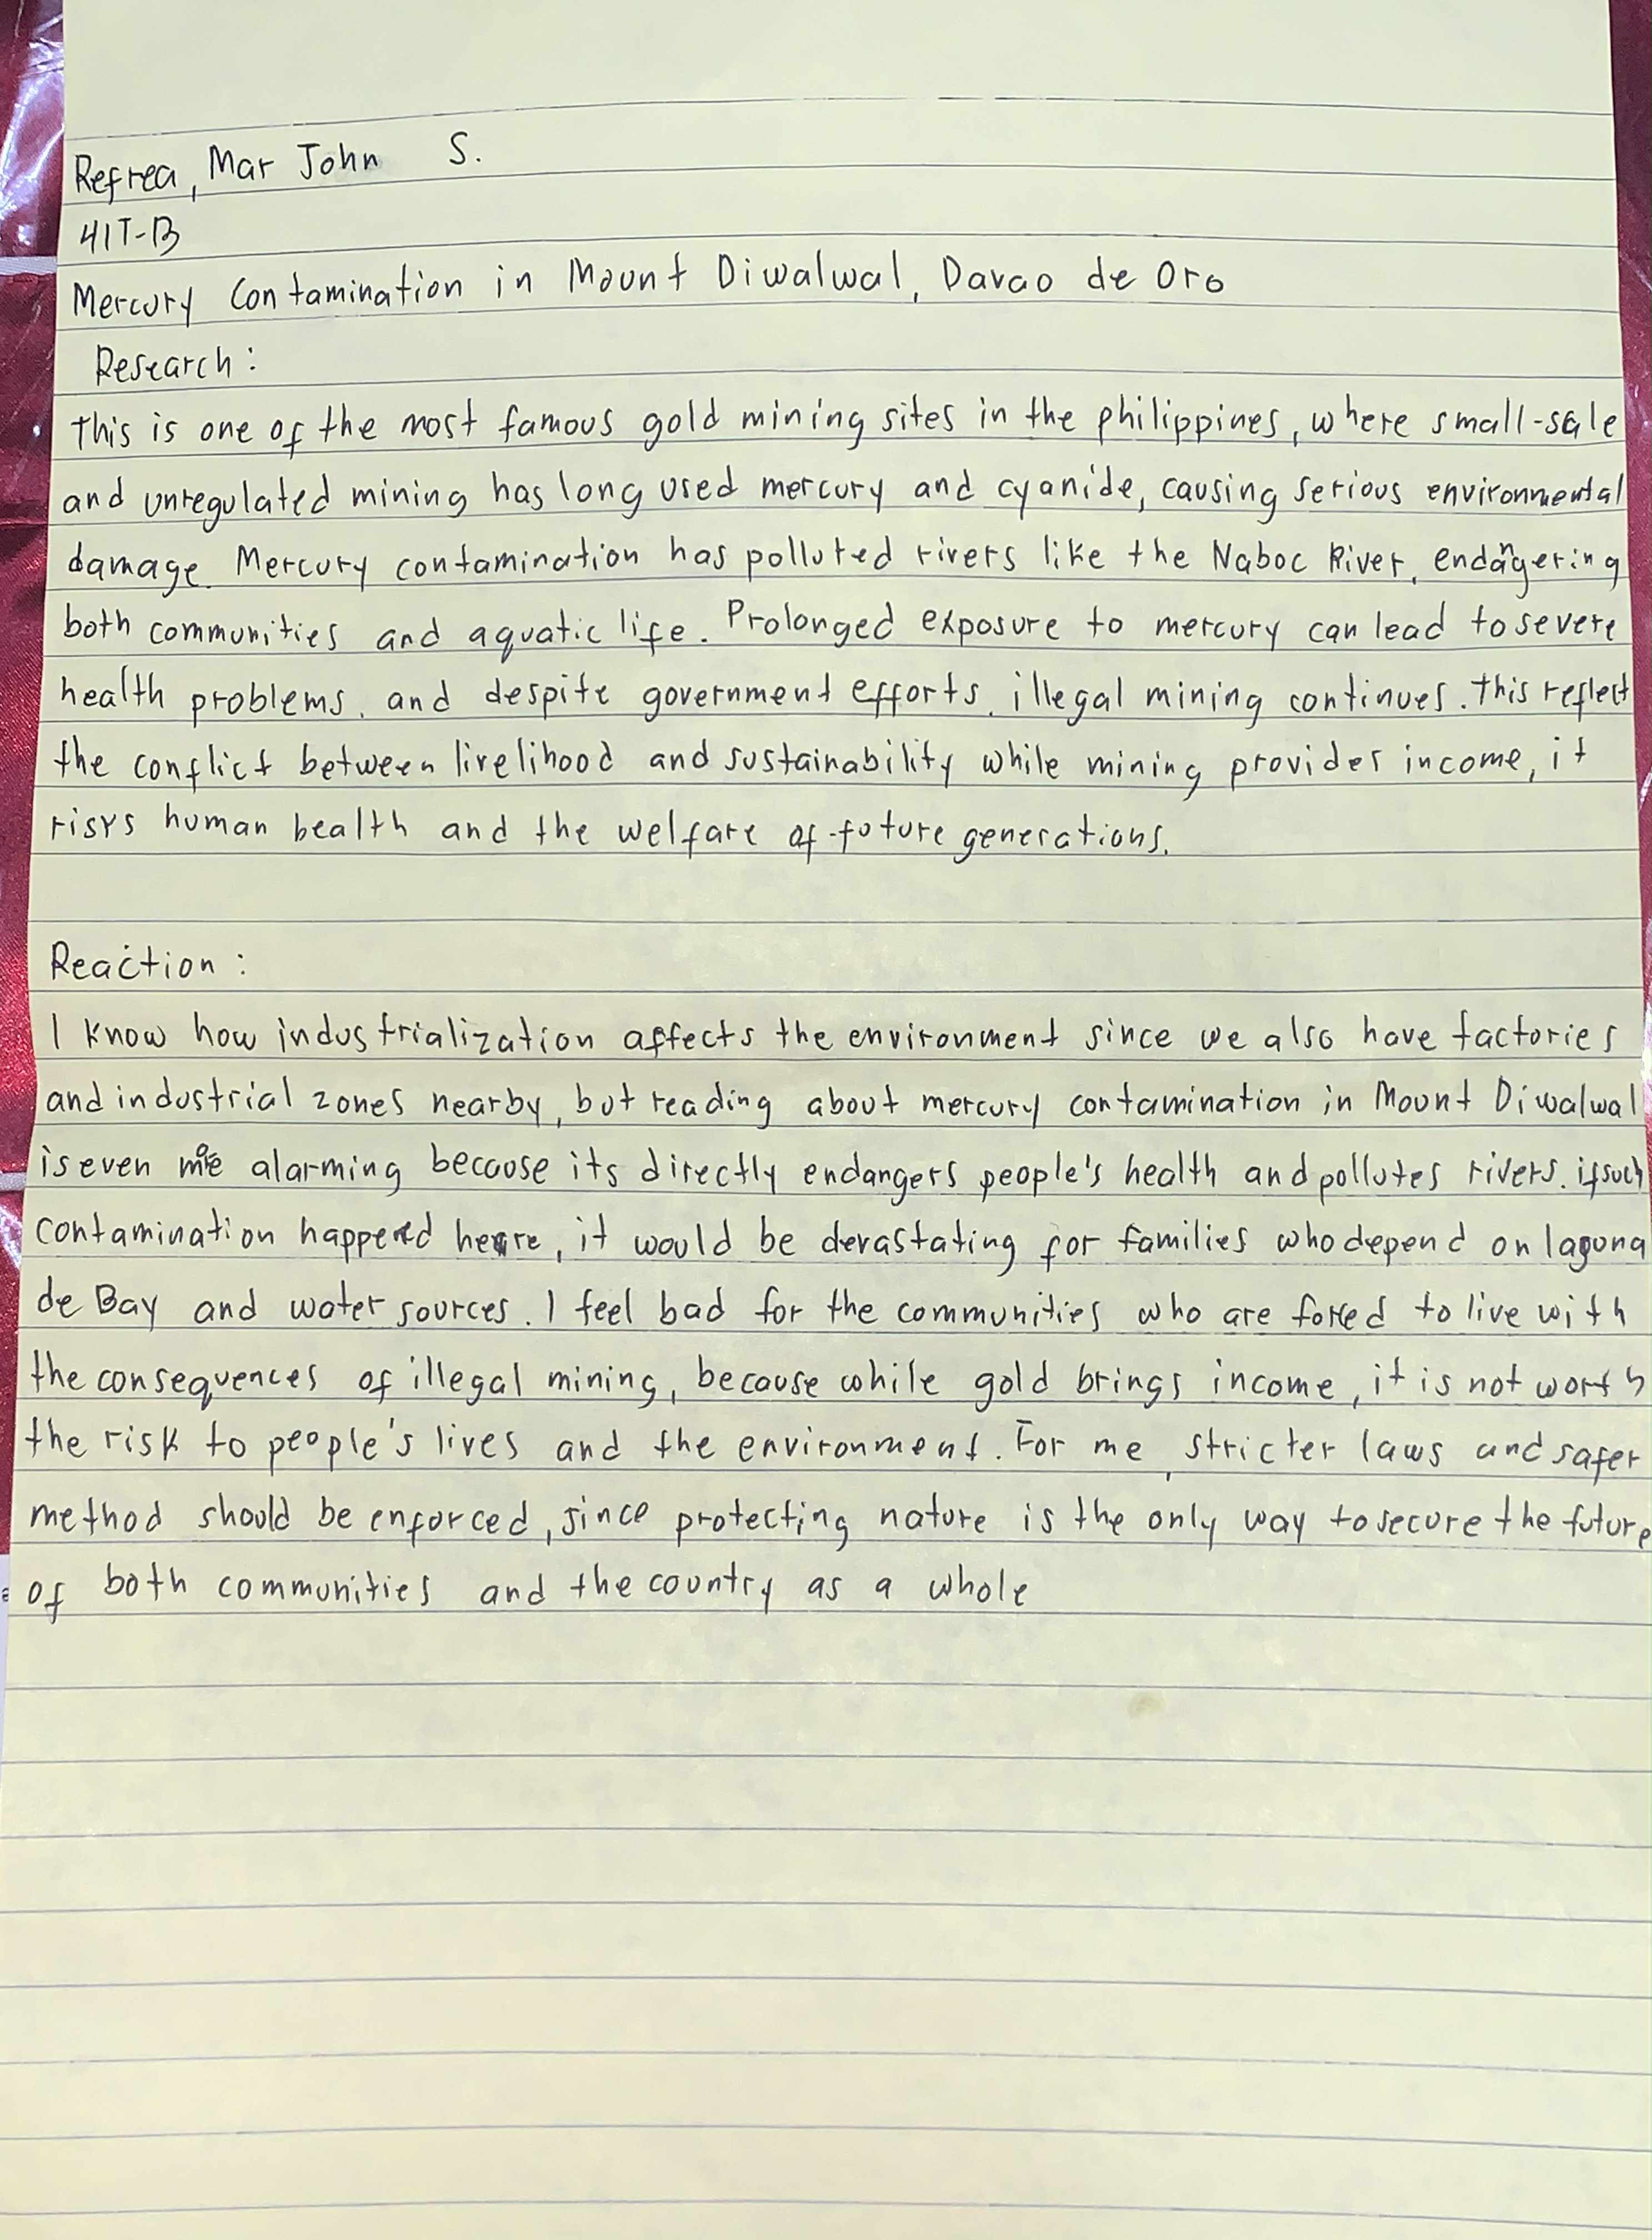 Refrea, Mar John S.
4IT-B
Mercury Contamination in Mount Diwalwal, Davao de Oro
Research:
This is one of the most famous gold mining sites in the philippines, where small-scale
and unregulated mining has long used mercury and cyanide, causing serious environmental
damage. Mercury contamination has polluted rivers like the Naboc River, endangering
both communities and aquatic life. Prolonged exposure to mercury can lead to severe
health problems, and despite government efforts, illegal mining continues. This reflect
the conflict between livelihood and sustainability while mining provides income, it
risks human health and the welfare of future generations.
Reaction:
I know how industrialization affects the environment since we also have factories
and industrial zones nearby, but reading about mercury contamination in Mount Diwalwal
is even more alarming because its directly endangers people's health and pollutes rivers. if such
contamination happened here, it would be devastating for families who depend on laguna
de Bay and water sources. I feel bad for the communities who are forced to live with
the consequences of illegal mining, because while gold brings income, it is not worth
the risk to people's lives and the environment. For me, stricter laws and safer
method should be enforced, since protecting nature is the only way to secure the future
of both communities and the country as a whole